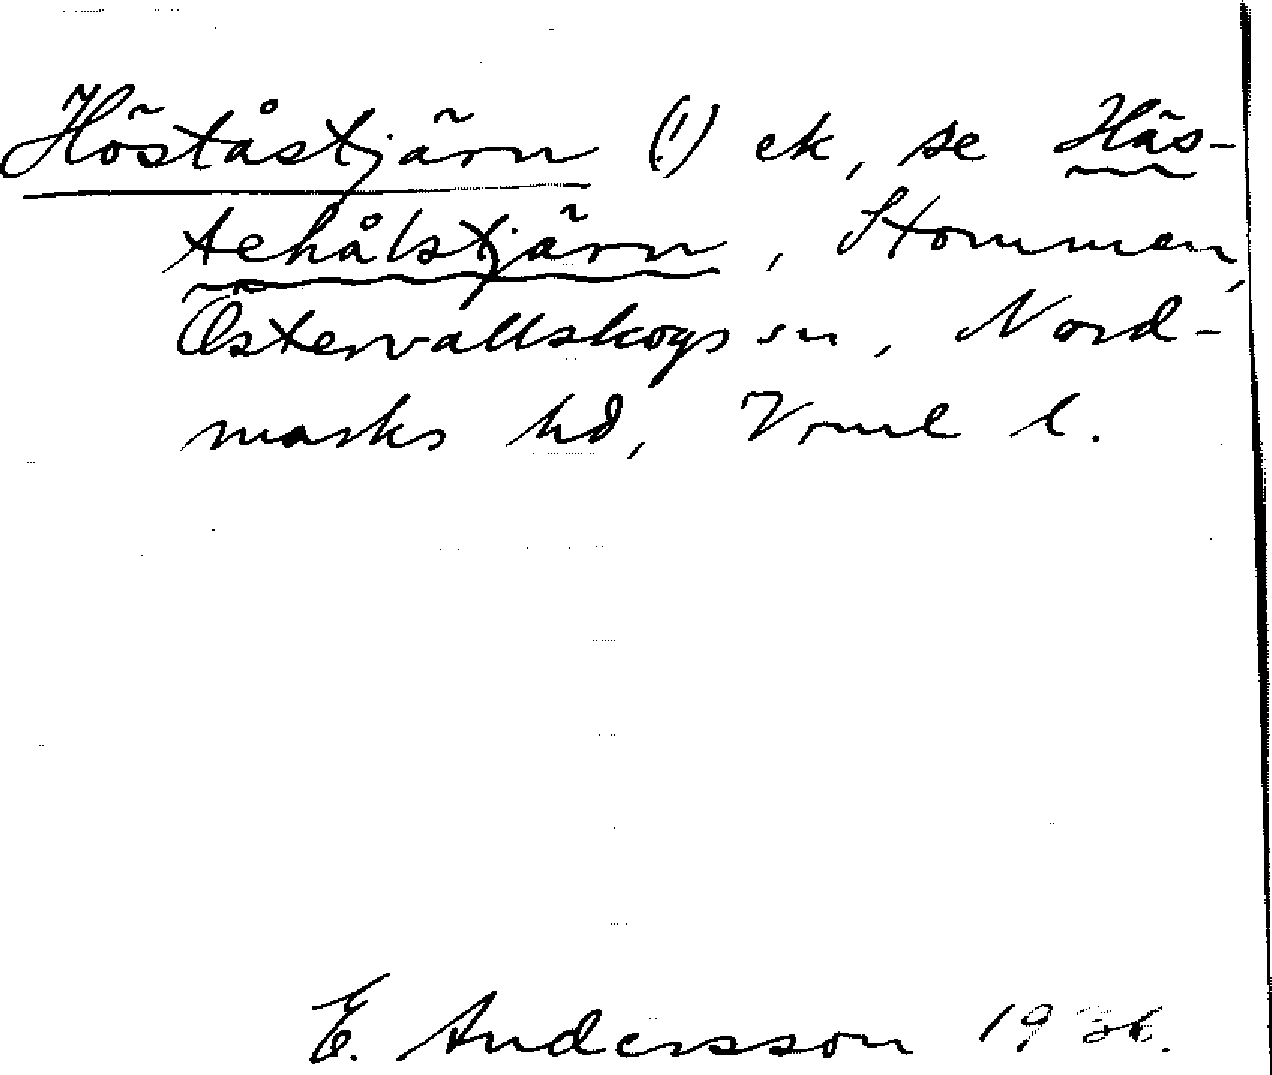 Höståstjärn (!) ek, se Häs-
tehålstjärn, Stommen,
Östervallskogs sn, Nord-
marks hd, Vrml l.
E. Andersson 1936.